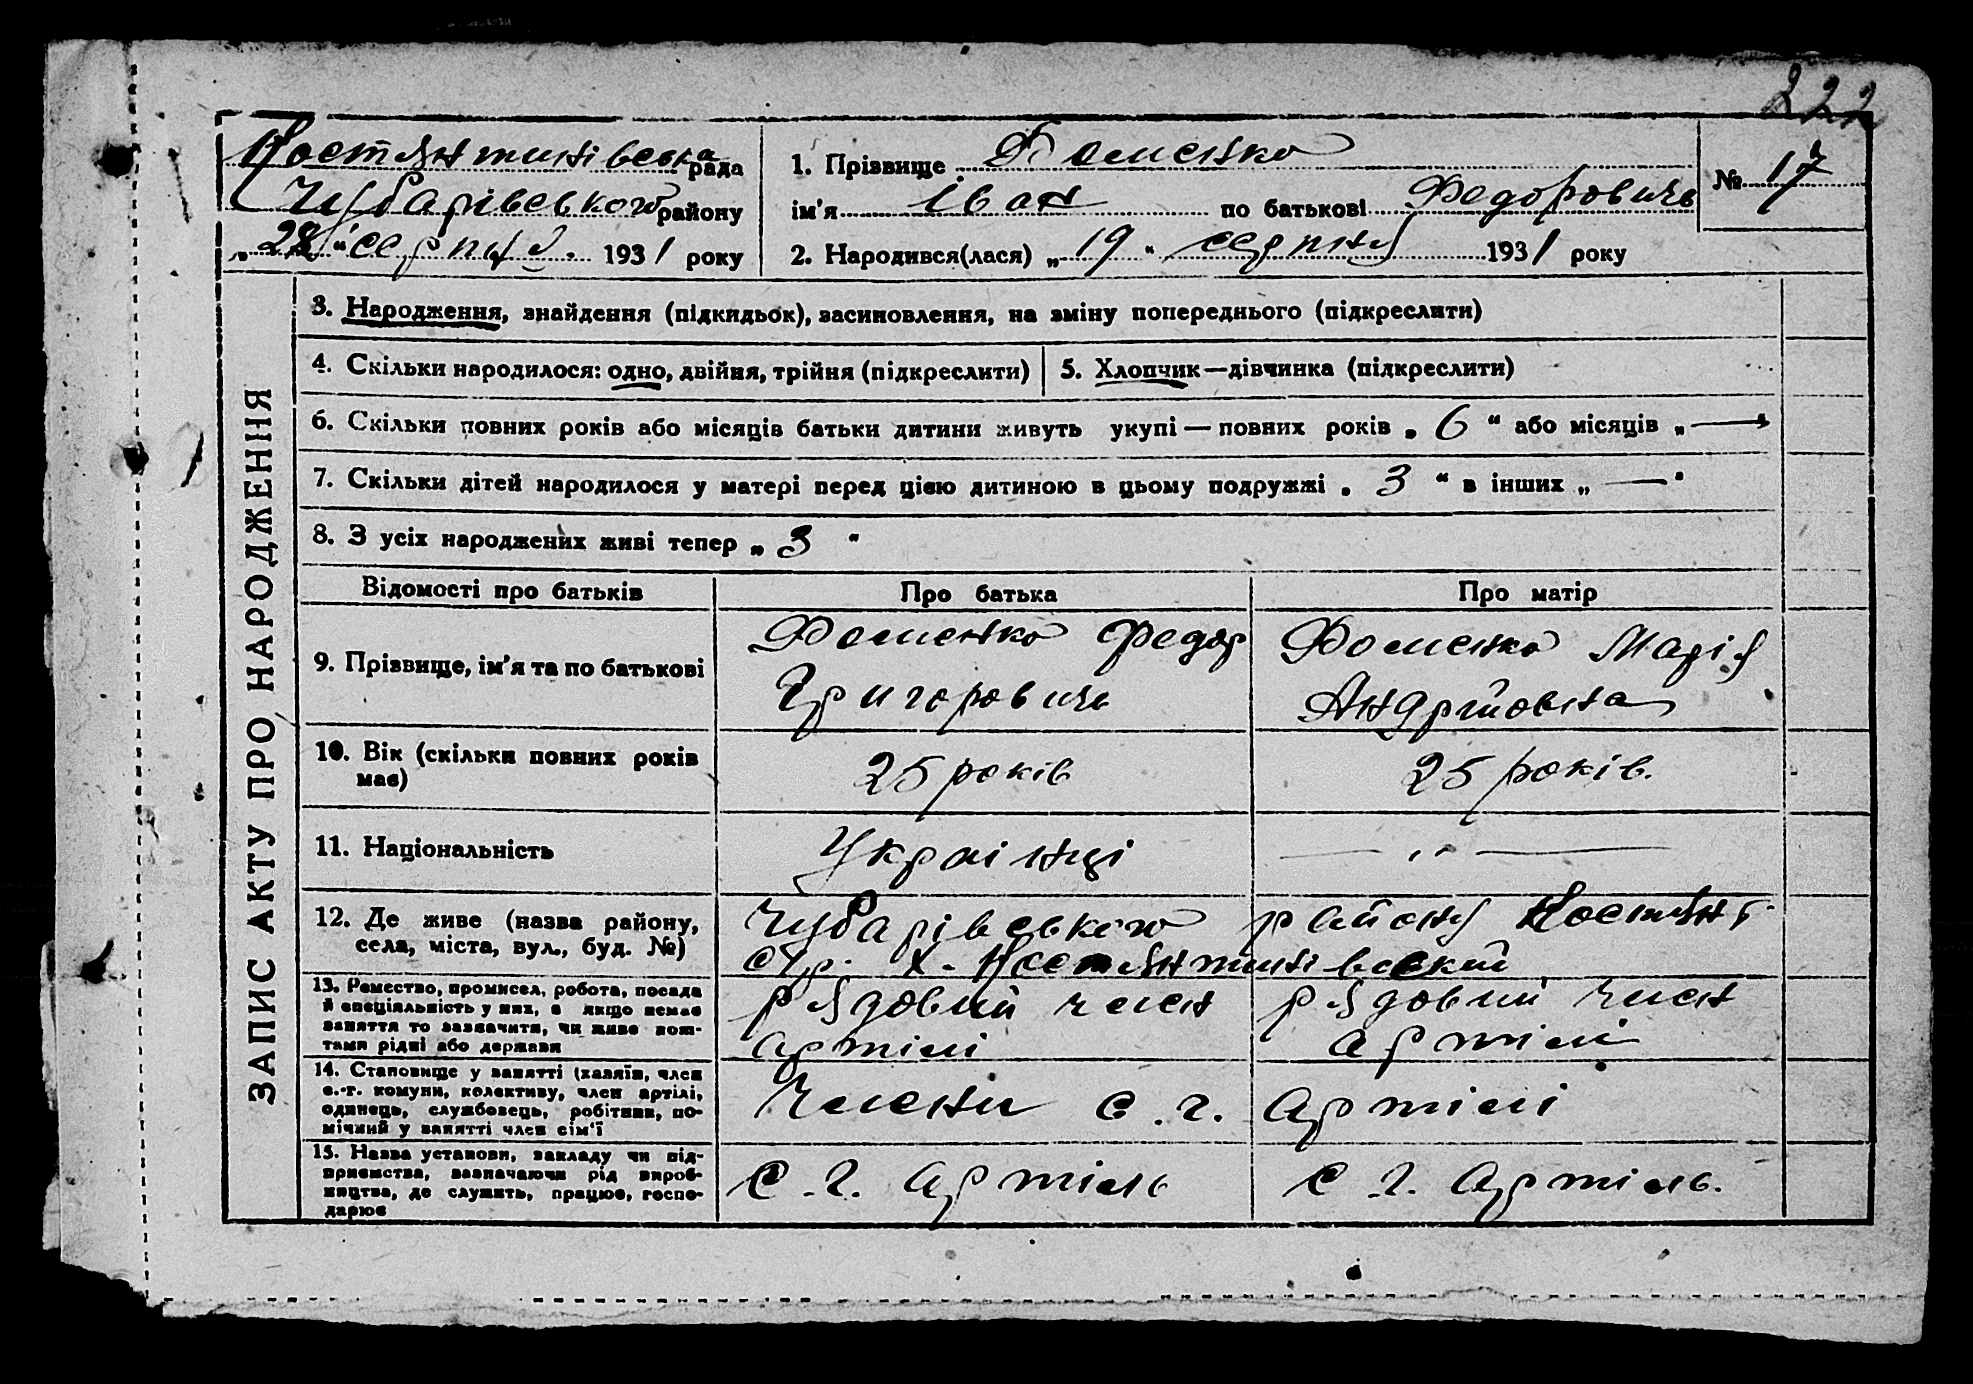 222
Костянтинівська рада
Чубарівського району
„28“ серпня 1931 року
1. Прізвище Фоменко
ім'я Іван по батькові Федоровичь
2. Народився(лася) „19“ серпня 1931 року
№ 17
ЗАПИС АКТУ ПРО НАРОДЖЕННЯ
3. Народження, знайдення (підкидьок), засиновлення, на зміну попереднього (підкреслити)
4. Скільки народилося: одно, двійня, трійня (підкреслити)
5. Хлопчик—дівчинка (підкреслити)
6. Скільки повних років або місяців батьки дитини живуть укупі — повних років „ 6 “ або місяців „ —
7. Скільки дітей народилося у матері перед цією дитиною в цьому подружжі „ 3 “ в інших „ — “
8. З усіх народжених живі тепер „ 3 “
Відомості про батьків
Про батька
Про матір
9. Прізвище, ім'я та по батькові
Фоменко Федор
Григоровичь
Фоменко Марія
Андрійовна
10. Вік (скільки повних років
має)
25 років
25 років.
11. Національність
Украінці
— „ —
12. Де живе (назва району,
села, міста, вул., буд. №)
Чубарівського району Костянт.
с/р. х. Костянтинівский
13. Ремество, промисел, робота, посада
й спеціяльність у них, а якщо немає
заняття то зазначити, чи живе кош-
тами рідні або держави
рядовий член
артілі
рядовий член
артілі
14. Становище у занятті (хазяїн, член
с.-г. комуни, колективу, член артілі,
одинець, службовець, робітник, по-
мічний у занятті член сім'ї
Члени с. г. артілі
15. Назва установи, закладу чи під-
приємства, зазначаючи рід вироб-
ництва, де служить, працює, госпо-
дарює
С. г. артіль
С. г. артіль.